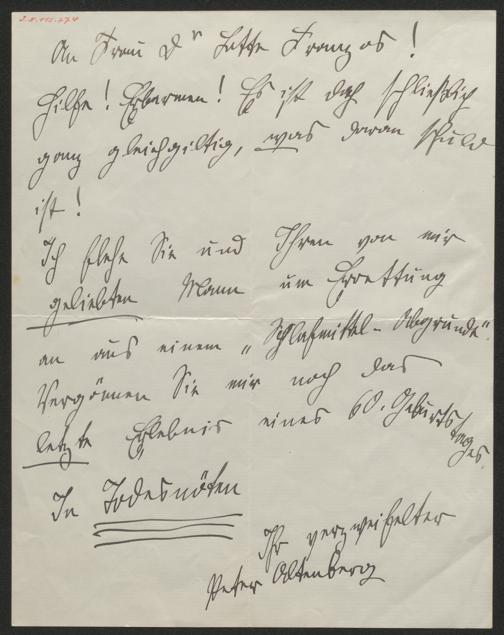 J.N. 115.774
An Frau Dr Lotte Franzos!
Hilfe! Erbarmen! Es ist doch schließlich
ganz gleichgiltig, was daran schuld
ist!
Ich flehe Sie und Ihren von mir
geliebten Mann um Errettung
an aus einem „Schlafmittel-Abgrunde“.
Vergönnen Sie mir noch das
letzte Erlebnis eines 60. Geburtstages.
In Todesnöten
Ihr verzweifelter
Peter Altenberg